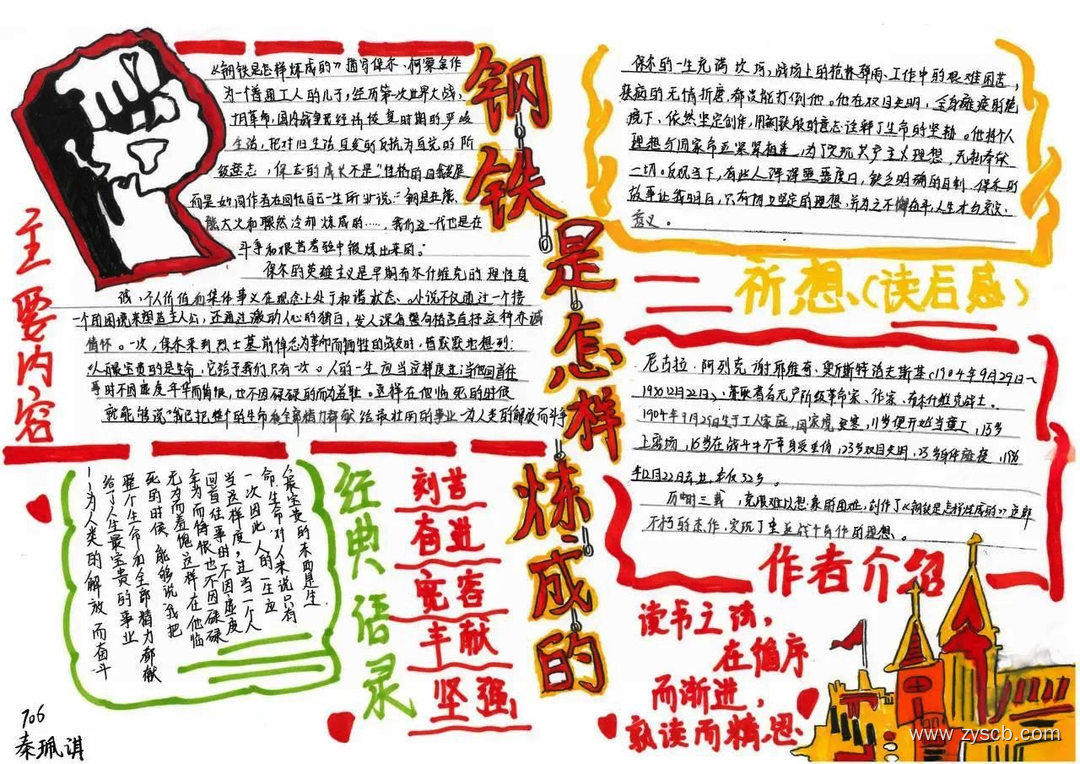 钢铁是怎样炼成的
主要内容
《钢铁是怎样炼成的》描写保尔·柯察金作
为一普通工人的儿子,经历第一次世界大战、
十月革命、国内战争及经济恢复时期的严峻
生活,他对旧生活自发的反抗
保尔的成长不是"性格的自我发展
而是如同作者在回忆自己一生所业说:"钢是在
熊大火和骤然冷却炼成的……,我们这一代也是在
斗争和艰苦考验中锻炼出来的。"
保尔的英雄主义是早期布尔什维克的理性真
诚,个人价值和集体事义在观念上处于和谐状态、小说不仅通过一个接
一个困困境来塑造主人公,还通过激动人心的独白,发人深省警句格言
情怀。一次,保尔来到烈士墓前悼念为革命而牺牲的战友时,曾默默地想到:
人最宝贵的是生命,它给予我们只有一次。人的一生应当这样度过:当他回首往
事时不因虚度年华而悔恨,也不因碌碌
这样在他临死的时候
就能够说"我已把整个的生命和全部精力都献给最壮丽的事业—为人类的解放而斗争
保尔的一生充满坎坷,战场上的枪林弹雨、工作中的艰难困苦,
疾病的无情折磨,都没能打倒他。他在双目失明,全身瘫痪的
境下,依然坚定创作,用钢铁般的意志诠释了生命的坚韧。他将个人
理想与国家命运紧紧相连,为了实现共产主义理想,无私奉献
一切。反观当下,有些人浑浑噩噩度日,缺乏明确的目标,保尔的
故事让我明白,只有树立坚定的理想,并为之不懈奋斗,人生才有
意义。
所想(读后感)
尼古拉·阿列克谢耶维奇·奥斯特洛夫斯基(1904年9月29日~
1936年12月22日),苏联著名无产阶级革命家、作家、布尔什维克战士。
1904年9月29日生于工人家庭,因家境贫寒,11岁便开始当童工,15岁
上战场,16岁在战斗中不幸身受重伤,23岁双目失明,25岁身体瘫痪,1936
年12月22日去世,年仅32岁。
历时三载,克服难以想象的困难,创作了《钢铁是怎样炼成的》这部
不朽的杰作,实现了重返战斗
的理想。
作者介绍
经典语录
人最宝贵的东西是生
命,生命对人来说只有
一次,因此,人的一生应
当这样度过:当一个人
回首往事时,不因虚度
年华而悔恨,也不因碌碌
无为而羞愧;这样,在他临
死的时候,能够说,我把
整个生命和全部精力都献
给了人生最宝贵的事业
——为人类的解放而奋斗
刻苦
奋进
宽容
丰献
坚强
读书之法,
在循序
而渐进,
熟读而精思
706
秦珮淇
www.zyscb.com